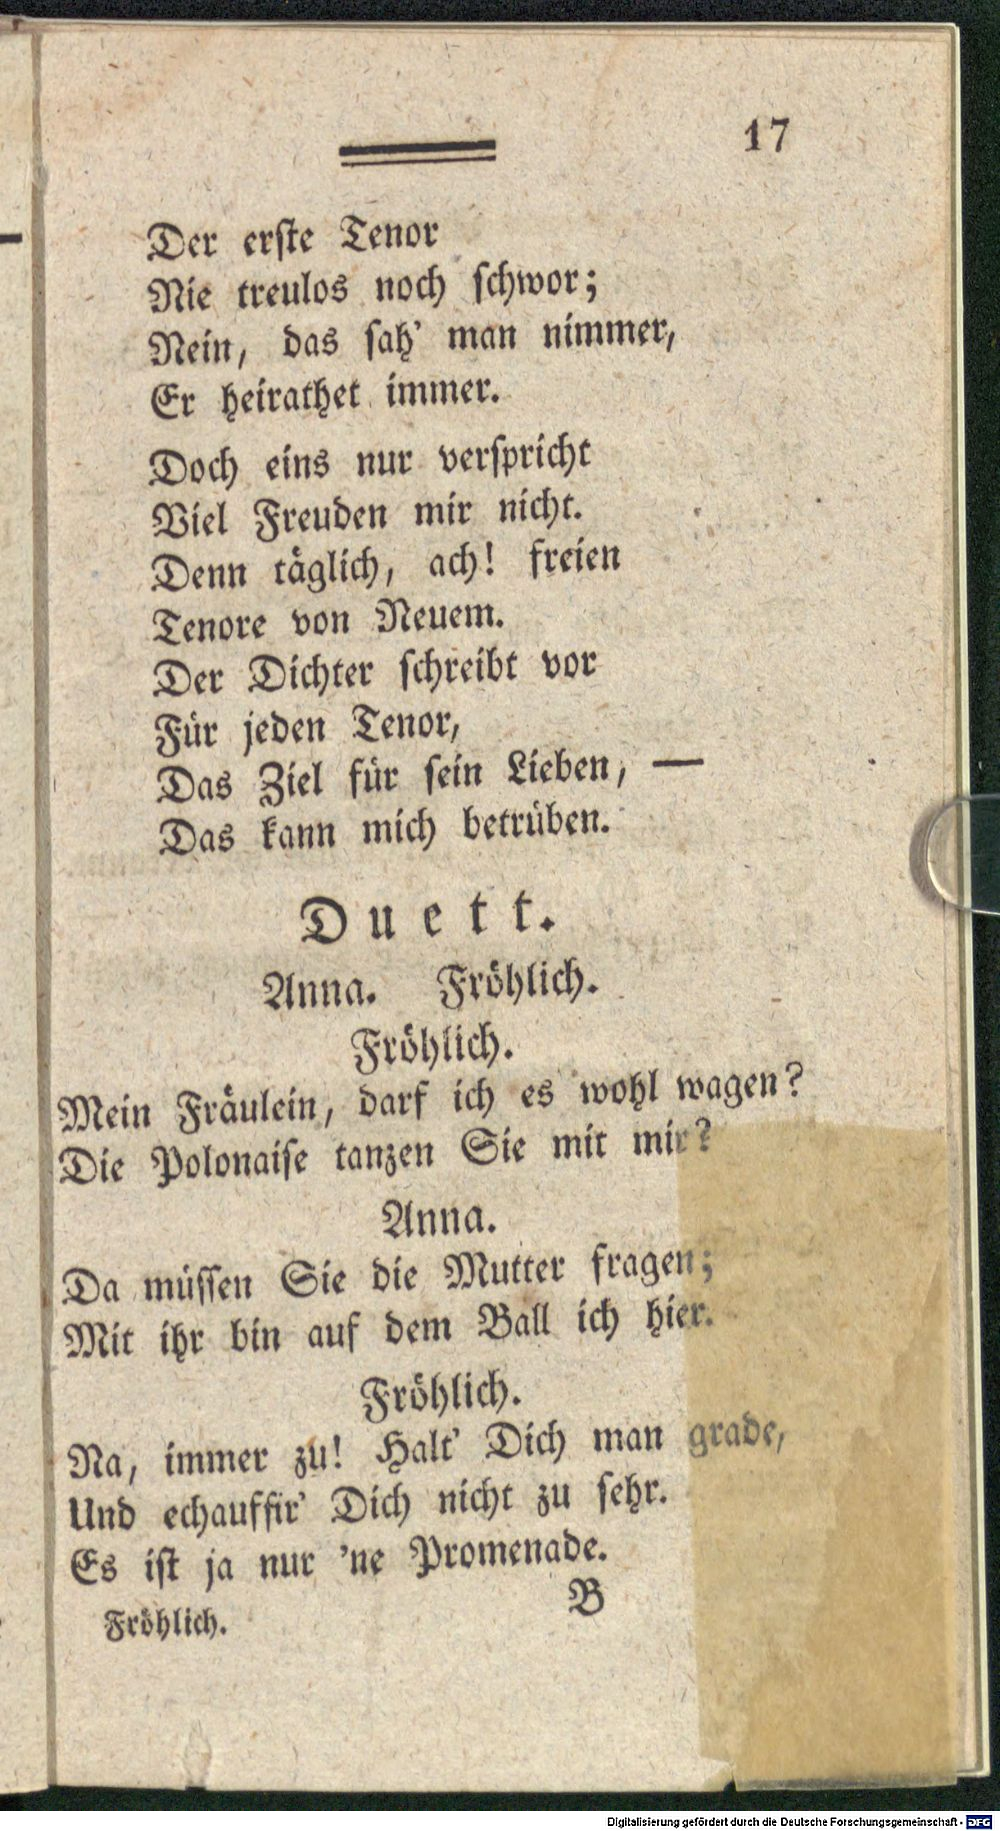 17
Der erste Tenor
Nie treulos noch schwor;
Nein, das sah' man nimmer,
Er heirathet immer.
Doch eins nur verspricht
Viel Freuden mir nicht.
Denn täglich, ach! freien
Tenore von Neuem.
Der Dichter schreibt vor
Für jeden Tenor,
Das Ziel für sein Lieben, —
Das kann mich betrüben.
Duett.
Anna. Fröhlich.
Fröhlich.
Mein Fräulein, darf ich es wohl wagen?
Die Polonaise tanzen Sie mit mir?
Anna.
Da müssen Sie die Mutter fragen;
Mit ihr bin auf dem Ball ich hier.
Fröhlich.
Na, immer zu! Halt' Dich man grade,
Und echauffir' Dich nicht zu sehr.
Es ist ja nur 'ne Promenade.
Fröhlich. B
Digitalisierung gefördert durch die Deutsche Forschungsgemeinschaft - DFG